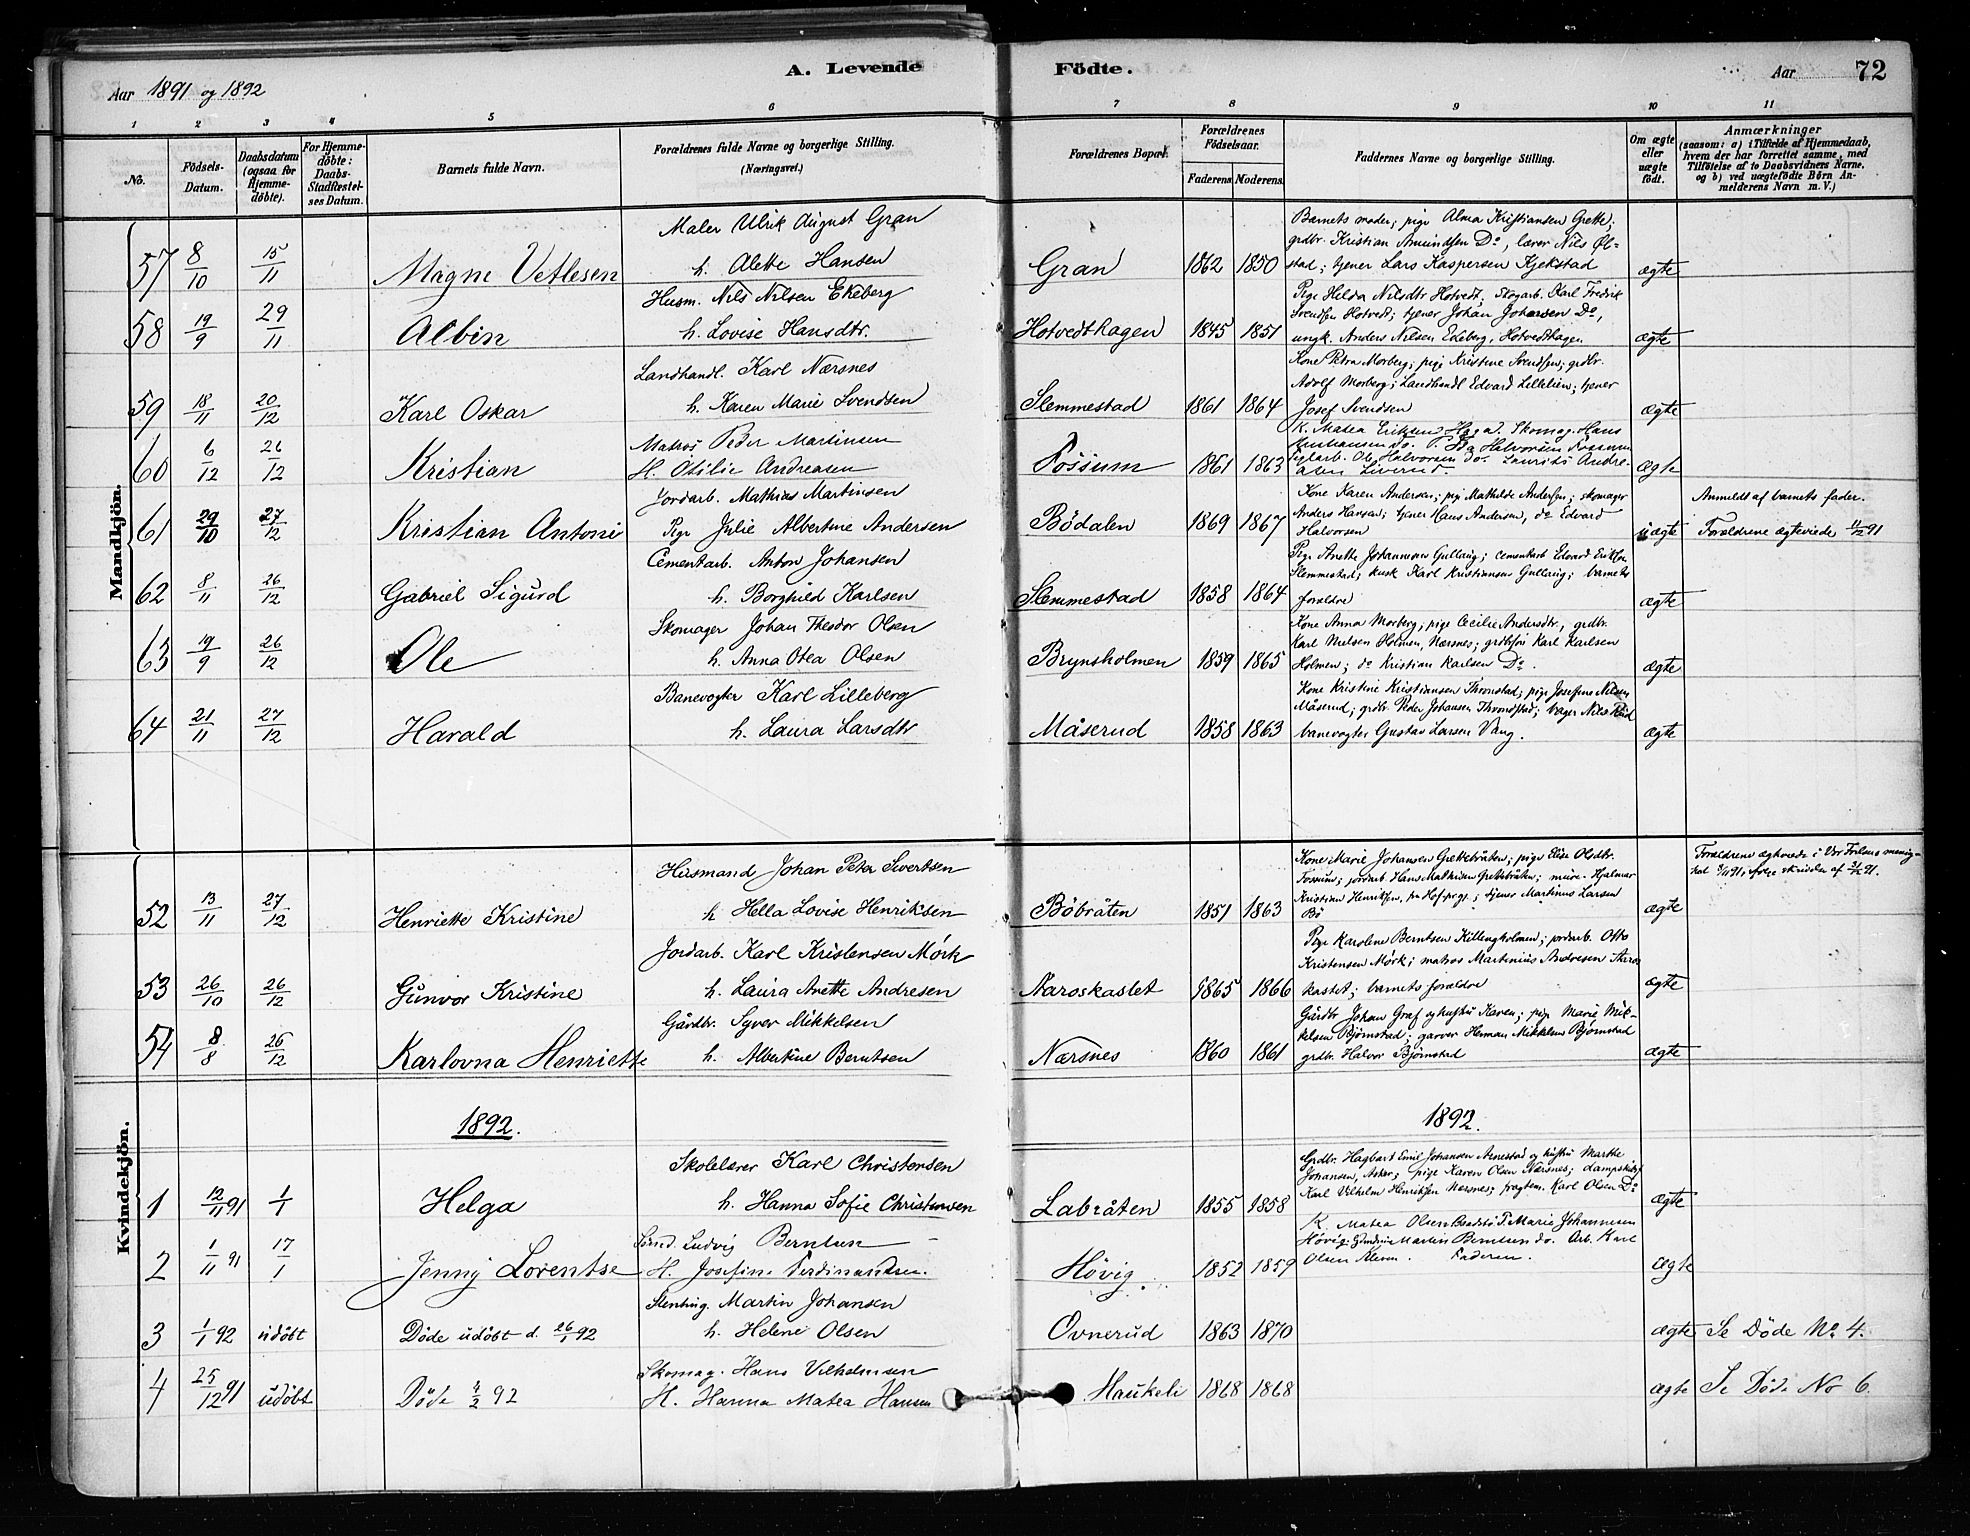 A. Levende Födte.
Aar 1891 og 1892
Aar 72
1 2 3 4 5 6 7 8 9 10 11
No.
Födsels-Datum.
Daabsdatum (ogsaa for Hjemme-döbte).
For Hjemme-döbte: Daabs-Stadfæstel-ses Datum.
Barnets fulde Navn.
Forældrenes fulde Navne og borgerlige Stilling. (Næringsvei.)
Forældrenes Bopæl.
Forældrenes Födselsaar.
Faderens. Moderens.
Faddernes Navne og borgerlige Stilling.
Om ægte eller uægte födt.
Anmærkninger
(saasom: a) i Tilfælde af Hjemmedaab, hvem der har forrettet samme, med Tilföielse af to Daabsvidners Navne, og b) ved uægtefödte Börn Anmelderens Navn m. V.)
Mandkjön.
57 8/10 15/11 Magne Vetlesen
Maler Ulrik August Gran
h. Alette Hansen
Gran 1862 1850
Barnets moder; pige Alma Kristiansen Grette;
grdbr. Kristian Amundsen Do, lærer Nils Øl-
stad; tjener Lars Kaspersen Kjekstad
ægte
58 19/9 29/11 Albin
Husm. Nils Nilsen Ekeberg
h. Lovise Hansdtr.
Hotvedthagen 1845 1851
Pige Helda Nilsdtr Hotvedt; Skogarb. Karl Fredrik
Svendsen Hotvedt; tjener Johan Johansen Do,
ungk. Anders Nilsen Ekeberg, Hotvedthagen
ægte
59 18/11 20/12 Karl Oskar
Landhandl. Karl Nærsnes
h. Karen Marie Svendsen
Slemmestad 1861 1864
Kone Petra Morberg; pige Kristine Svendsen; grdbr.
Adolf Morberg; Landhandl Edvard Lillelien; tjener
Josef Svendsen
ægte
60 6/12 26/12 Kristian
Matros Peder Martinsen
H. Otilie Andreasen
Fossum 1861 1863
K. Matea Eriksen Haga. Skomag. Hans
Halvorsen Fossum
Teglarb. Ole Halvorsen do. Laurits Andre-
asen Liverud.
ægte
61 29/10 27/12 Kristian Antoni
Jordarb. Mathias Martinsen
Pige Julie Albertine Andersen
Bödalen 1869 1867
Kone Karen Andersen; pige Mathilde Andersen; skomager
Anders Hansen; tjener Hans Andersen, do Edvard
Halvorsen
uægte
Anmeldt af barnets fader.
Forældrene ægteviede 11/12 91
62 8/11 26/12 Gabriel Sigurd
Cementarb. Anton Johansen
h. Borghild Karlsen
Slemmestad 1858 1864
Pige Anette Johannesen Gullaug; cementarb Edvard Eriksen
Slemmestad; kusk Karl Kristiansen Gullaug; barnets
forældre
ægte
63 19/9 26/12 Ole
Skomager Johan Theodor Olsen
h. Anna Otea Olsen
Brynsholmen 1859 1865
Kone Anna Morberg; pige Cecilie Andersdtr., grdbr.
Karl Nielsen Holmen, Nærsnes; grdbrsøn Karl Karlsen
Holmen; do Kristian Karlsen Do.
ægte
64 21/11 27/12 Harald
Banevogter Karl Lilleberg
h. Laura Larsdtr
Måserud 1858 1863
Kone Kristine Kristiansen Thronstad; pige Josefine Nilsen
Måserud; grdbr. Peder Johansen Throndstad; bager Nils
banevogter Gustav Larsen Vang.
ægte
Kvindekjön.
52 13/11 27/12 Henriette Kristine
Husmand Johan Peter Sivertsen
h Hella Lovise Henriksen
Böbråten 1851 1863
Kone Marie Johansen Grettebråten; pige Elise Olsdtr.
Fossum; jordarb Hans Mathisen Grettebråten; murer Hjalmar
Kristian Henriksen, fra Hof prgj.; tjener Martinus Larsen
Bö
ægte
Forældrene ægteviede i Vor Frelsers menig-
hed 91, ifølge skrivelse af 91.
53 26/10 26/12 Gunvor Kristine
Jordarb. Karl Kristensen Mørk
h. Laura Anette Andresen
Naroskastet 1865 1866
Pige Karoline Berntsen Killingholmen; jordarb. Otto
Kristensen Mørk; matros Martinius Andresen
kastet; barnets forældre
ægte
54 8/8 26/12 Karlovna Henriette
Gårdbr. Syver Mikkelsen
h. Albertine Berntsen
Nærsnes 1860 1861
Gårdbr Johan Graf og hustru Karen; pige Marie Mik-
kelsen Bjørnstad; garver Herman Mikkelsen Bjørnstad
grdbr. Halvor Bjørnstad
ægte
1892. 1892.
1 12/11 91 1/1 Helga
Skolelærer Karl Christensen
h. Hanna Sofie Christensen
Labråten 1855 1858
Grdbr. Hagbart Emil Johansen Arnestad og hustru Marthe
Johansen, Asker; pige Karen Olsen Nærsnes;
Karl Vilhelm Henriksen Nærsnes; fragtem. Karl Olsen Do
ægte
2 1/11 91 17/1 Jenny Lorentse
Ludvig Berntsen
H. Josefine Ferdinandsen.
Høvig 1852 1859
K. Matea Olsen P. Marie Johannesen
Høvig. Martin Berntsen do. Arb. Karl
Olsen Faderen.
ægte
3 1/1 92 udöbt Döde udöbt d. 26/1 92
Stenhug. Martin Johansen
h. Helene Olsen
Ovnerud 1863 1870
ægte Se Döde No. 4.
4 25/12 91 udöbt Döde 4/2 92
Skomag. Hans Vilhelmsen
H. Hanna Matea Hansen
Haukeli 1868 1868
ægte Se Döde No 6.